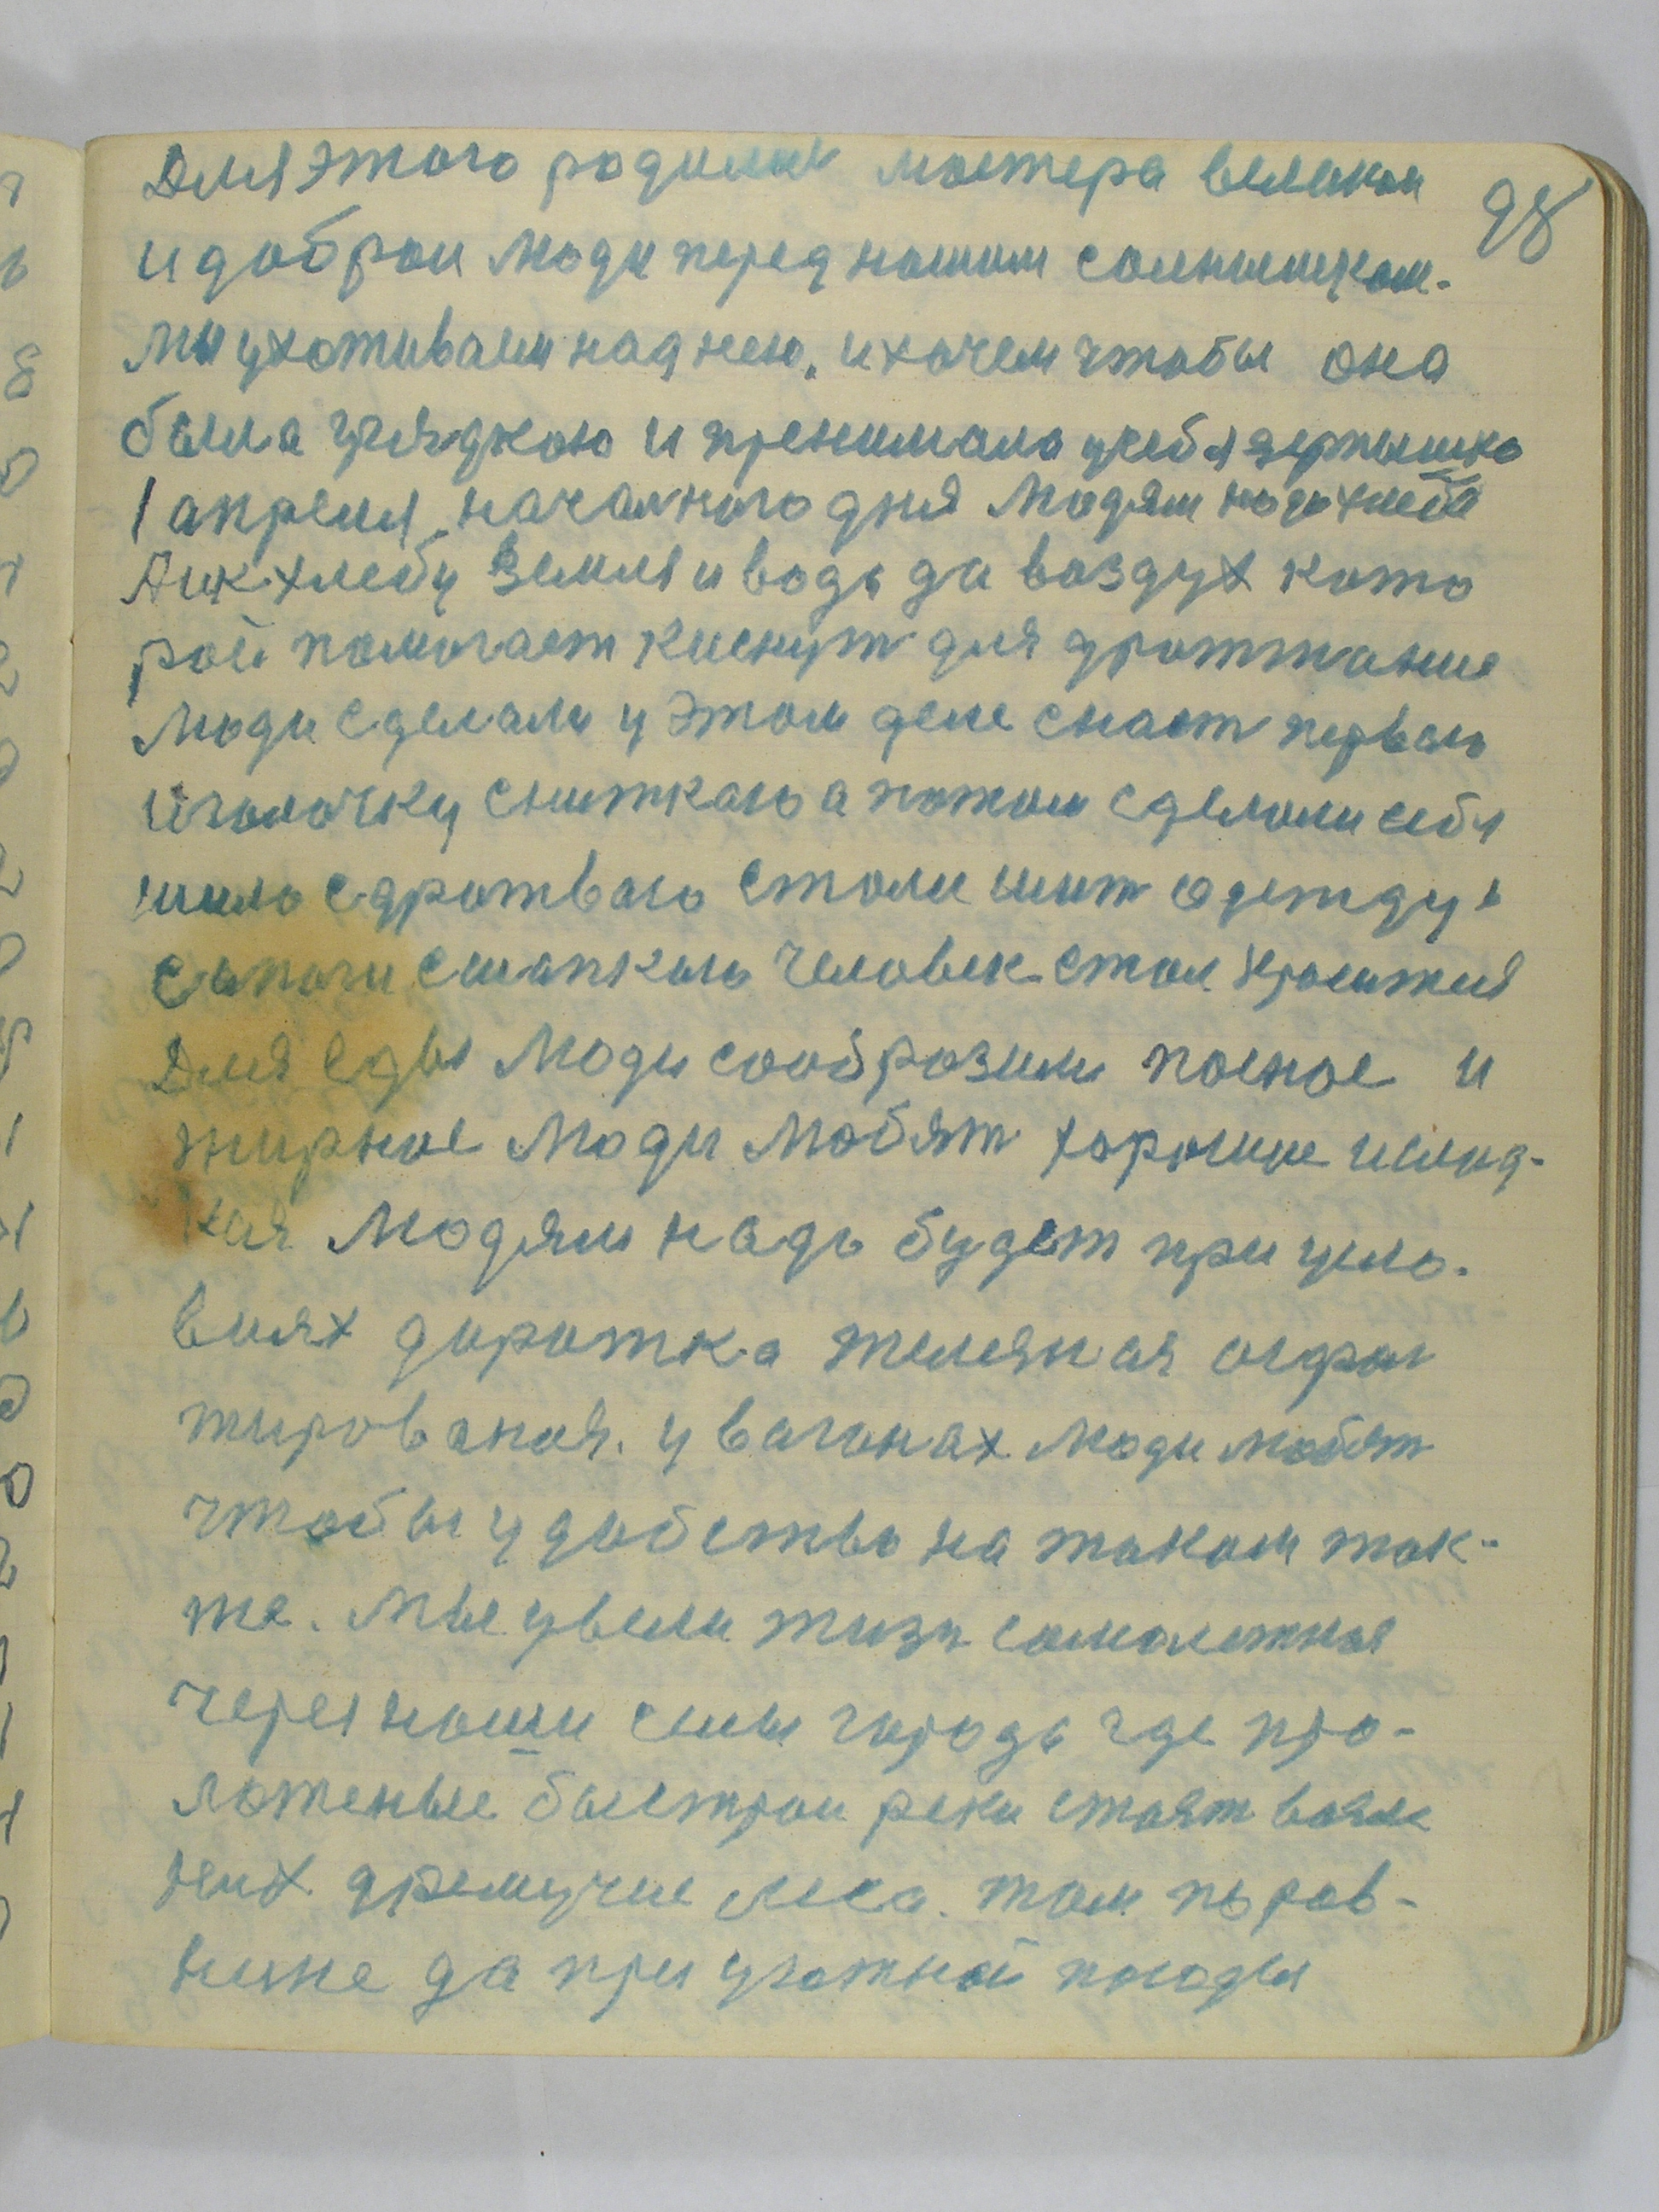 98
Для этого родились мастера великаи
и доброи люди перед нашим солнышком.
Мы ухаживаем над нею, и хочем чтобы она
была угрядкою и пренимала у себя зернышко
1 апреля началного дня людям надо хлеба
А к хлебу земля и вода да воздух кото
рои помогает киснут для дрожжания
люди сделали у этом деле снаст первою
иголочку с ниткаю а потом сделали себя
шило с дротваю стали шит одежду
сапоги с шапкаю человек стал красится
Для еды люди сообразили посное и
жирное люди любят хорошие и слад-
кая людям надо будет при усло-
виях дорожка железная асфал
тированая. у вагонах люди любят
чтобы удобства на таком так-
же. Мы увели жизн самолетная
через наши силы города где про-
ложеные быстрои реки стоят возле
них дремучие леса. там по рав-
нине да при уютной погоды